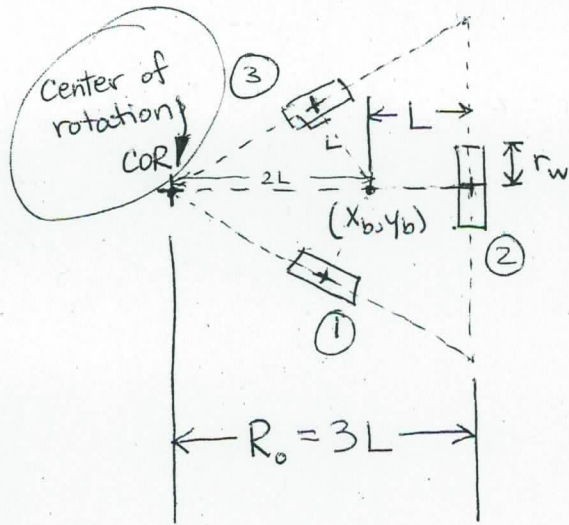 Center of
rotation
COR
③
L
L
2L
r_w
(x_b, y_b)
②
①
R_o = 3L